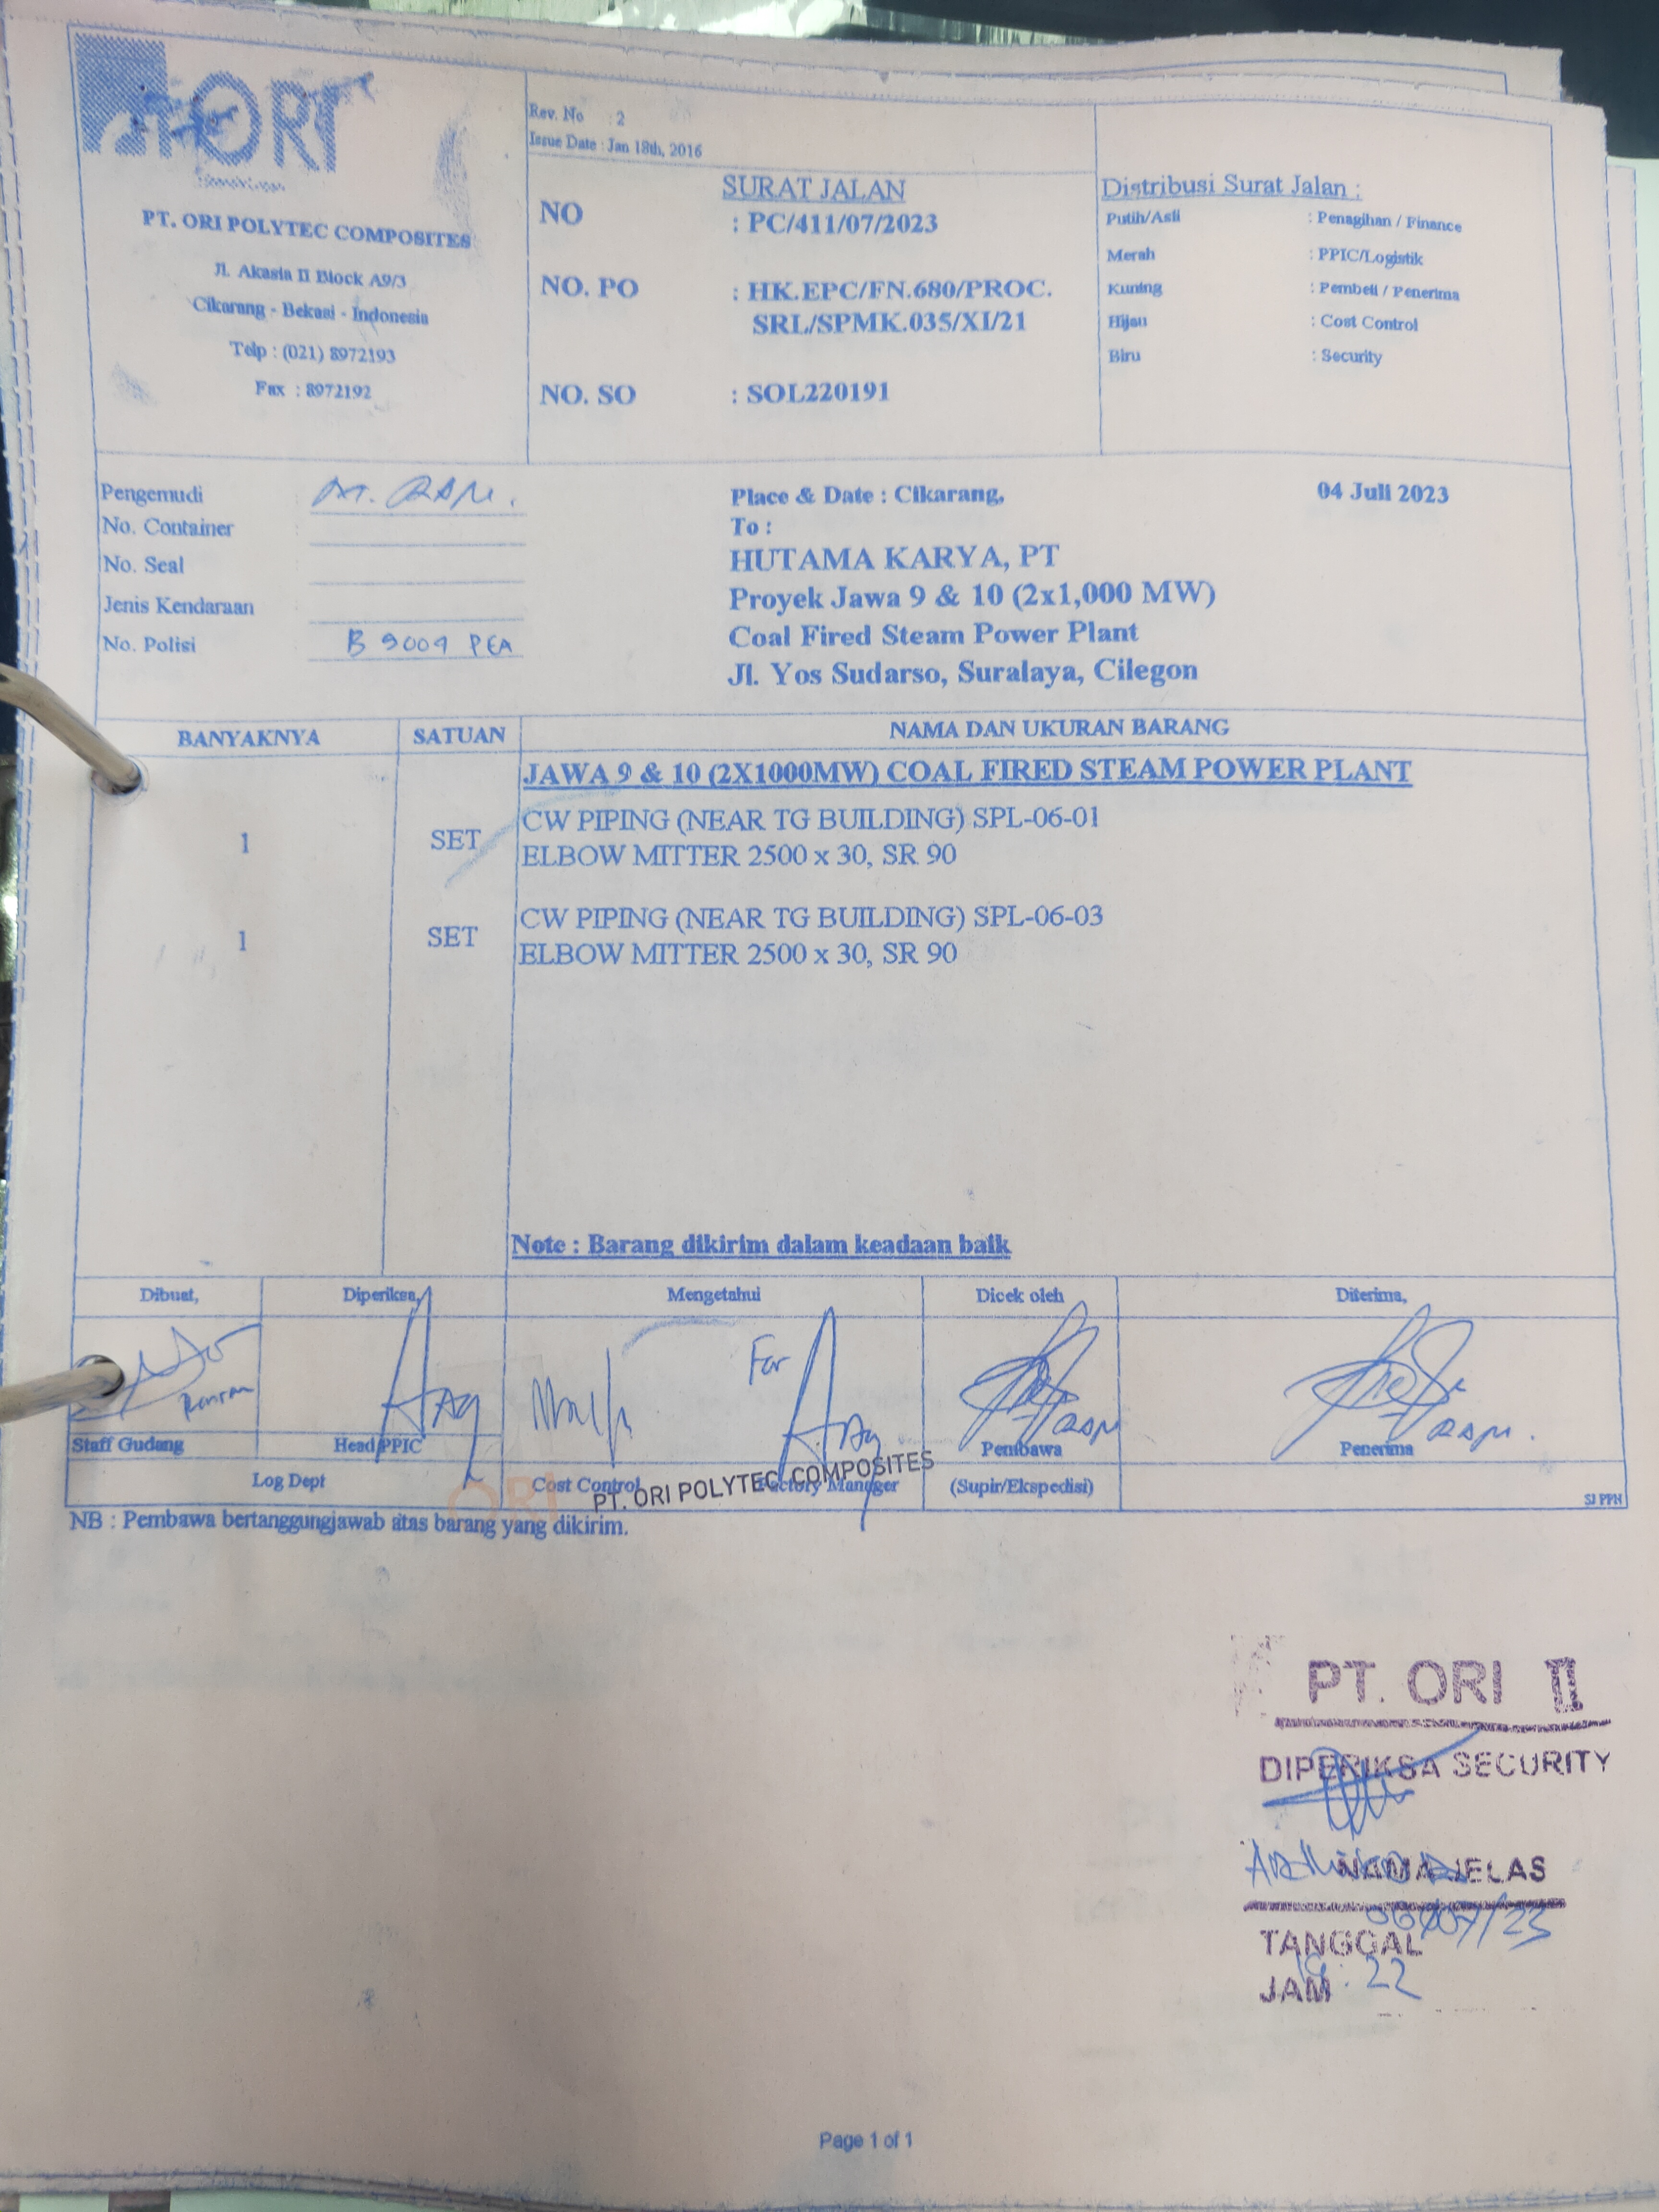 ORI
PT. ORI POLYTEC COMPOSITES
Jl. Akasia II Block A9/3
Cikarang - Bekasi - Indonesia
Telp : (021) 8972193
Fax : 8972192
Rev. No : 2
Issue Date : Jan 18th, 2016
SURAT JALAN
NO : PC/411/07/2023
NO. PO : HK.EPC/FN.680/PROC.
SRL/SPMK.035/XI/21
NO. SO : SOL220191
Distribusi Surat Jalan :
Putih/Asli : Penagihan / Finance
Merah : PPIC/Logistik
Kuning : Pembeli / Penerima
Hijau : Cost Control
Biru : Security
Pengemudi
No. Container
No. Seal
Jenis Kendaraan
No. Polisi B 9009 PEA
Place & Date : Cikarang, 04 Juli 2023
To :
HUTAMA KARYA, PT
Proyek Jawa 9 & 10 (2x1,000 MW)
Coal Fired Steam Power Plant
Jl. Yos Sudarso, Suralaya, Cilegon
BANYAKNYA SATUAN NAMA DAN UKURAN BARANG
JAWA 9 & 10 (2X1000MW) COAL FIRED STEAM POWER PLANT
1 SET CW PIPING (NEAR TG BUILDING) SPL-06-01
ELBOW MITTER 2500 x 30, SR 90
1 SET CW PIPING (NEAR TG BUILDING) SPL-06-03
ELBOW MITTER 2500 x 30, SR 90
Note : Barang dikirim dalam keadaan baik
Dibuat, Diperiksa, Mengetahui Dicek oleh Diterima,
For
Staff Gudang Head PPIC Pembawa Penerima
Log Dept Cost Control Factory Manager (Supir/Ekspedisi)
ORI PT. ORI POLYTEC COMPOSITES
SJ PPH
NB : Pembawa bertanggungjawab atas barang yang dikirim.
PT. ORI II
DIPERIKSA SECURITY
NAMA JELAS
06/07/23
TANGGAL
JAM : 22
Page 1 of 1